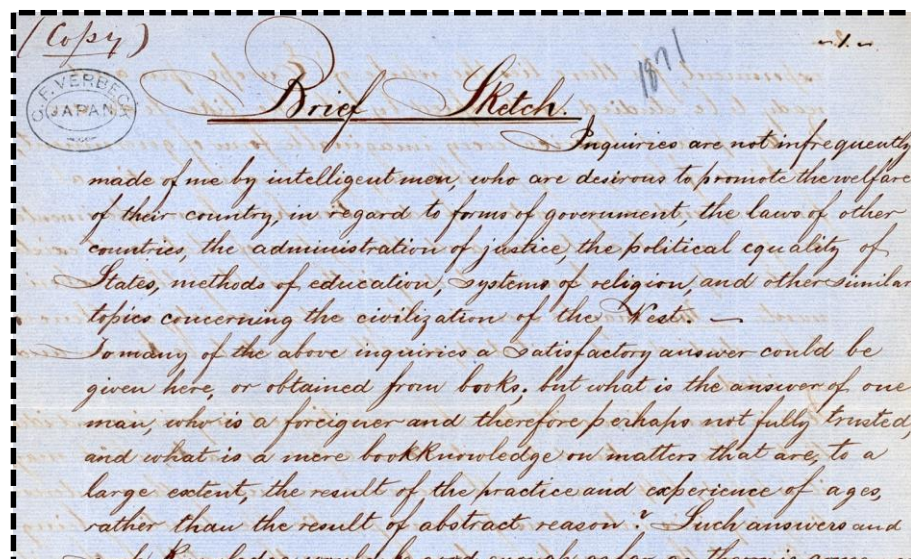 (Copy)
~1.~
1871
G. F. VERBECK
JAPAN
Brief Sketch.
Inquiries are not infrequently
made of me by intelligent men, who are desirous to promote the welfare
of their country, in regard to forms of government, the laws of other
countries, the administration of justice, the political equality of
States, methods of education, systems of religion, and other similar
topics concerning the civilization of the West. —
To many of the above inquiries a satisfactory answer could be
given here, or obtained from books; but what is the answer of one
man, who is a foreigner and therefore perhaps not fully trusted,
and what is a mere bookknowledge on matters that are, to a
large extent, the result of the practice and experience of ages,
rather than the result of abstract reason? Such answers and